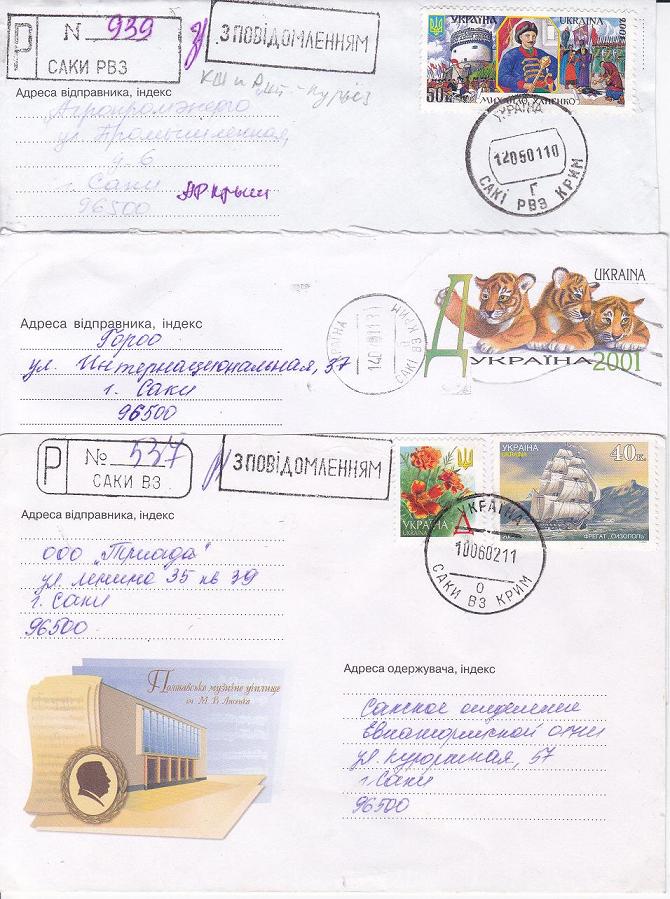 Р N 939
САКИ РВЗ
З ПОВІДОМЛЕННЯМ
УКРАЇНА UKRAINA
2002
50к
МИХАЙЛО ХАНЕНКО
Адреса відправника, індекс
Агропромэнерго
ул Промышленная,
г. Саки АР Крым
96500
УКРАЇНА
12050110
Г
САКІ РВЗ КРИМ
UKRAINA
Д УКРАЇНА 2001
Адреса відправника, індекс
Город
ул. Интернациональная, 37
г. Саки
96500
Р № 537
САКИ ВЗ
З ПОВІДОМЛЕННЯМ
УКРАЇНА
UKRAINA
Д
УКРАЇНА
UKRAINA
40к.
ФРЕГАТ „СИЗОПОЛЬ"
УКРАЇНА
10060211
О
САКИ ВЗ КРИМ
Адреса відправника, індекс
ООО „Триада"
ул. Ленина 35 кв 39
г. Саки
96500
Полтавське музичне училище
ім. М. В. Лисенка
Адреса одержувача, індекс
Сакское отделение
Евпаторийской
ул Курортная, 57
г. Саки
96500